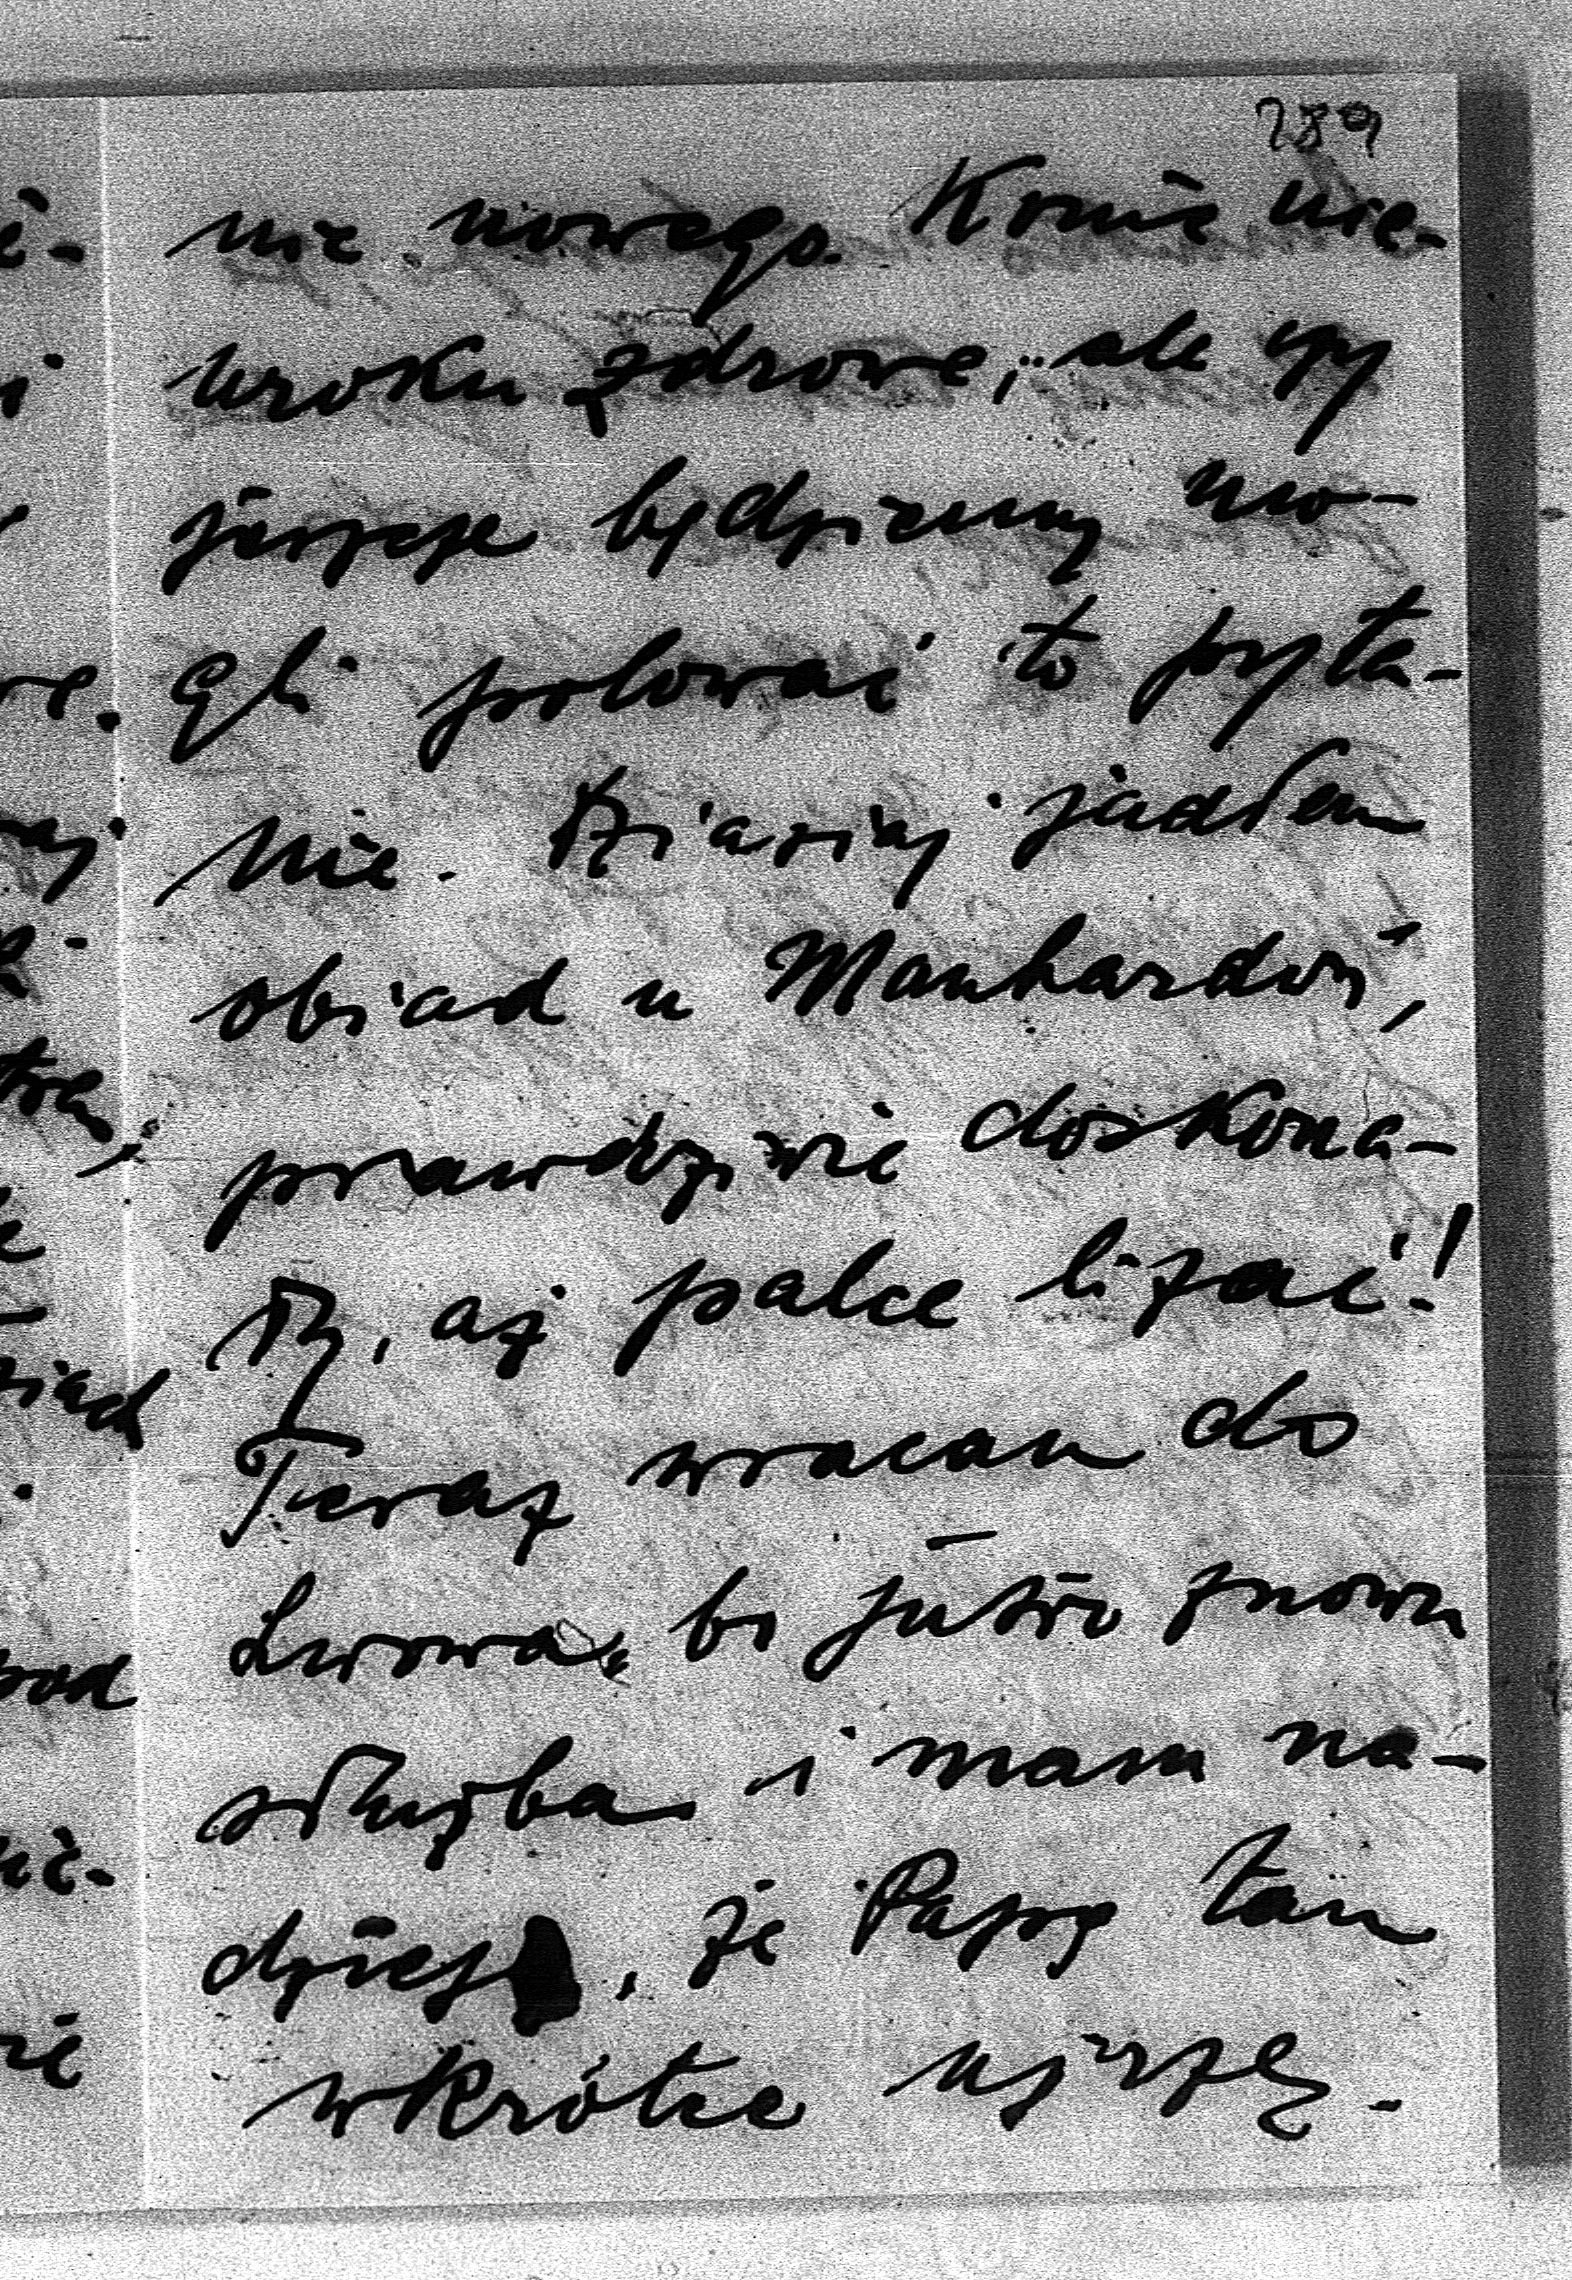 289
nic nowego. Konie nie-
uroku zdrowe, ale czy
jeszcze będziemy mo-
gli polować to pyta-
nie. Dzisiaj jadłem
obiad u Manhardów,
prawdziwie doskona-
ły, aż palce lizać!
Teraz wracam do
Lwowa, bo jutro znowu
służba i mam na-
dzieję, że Papę tam
wkrótce ujrzę.